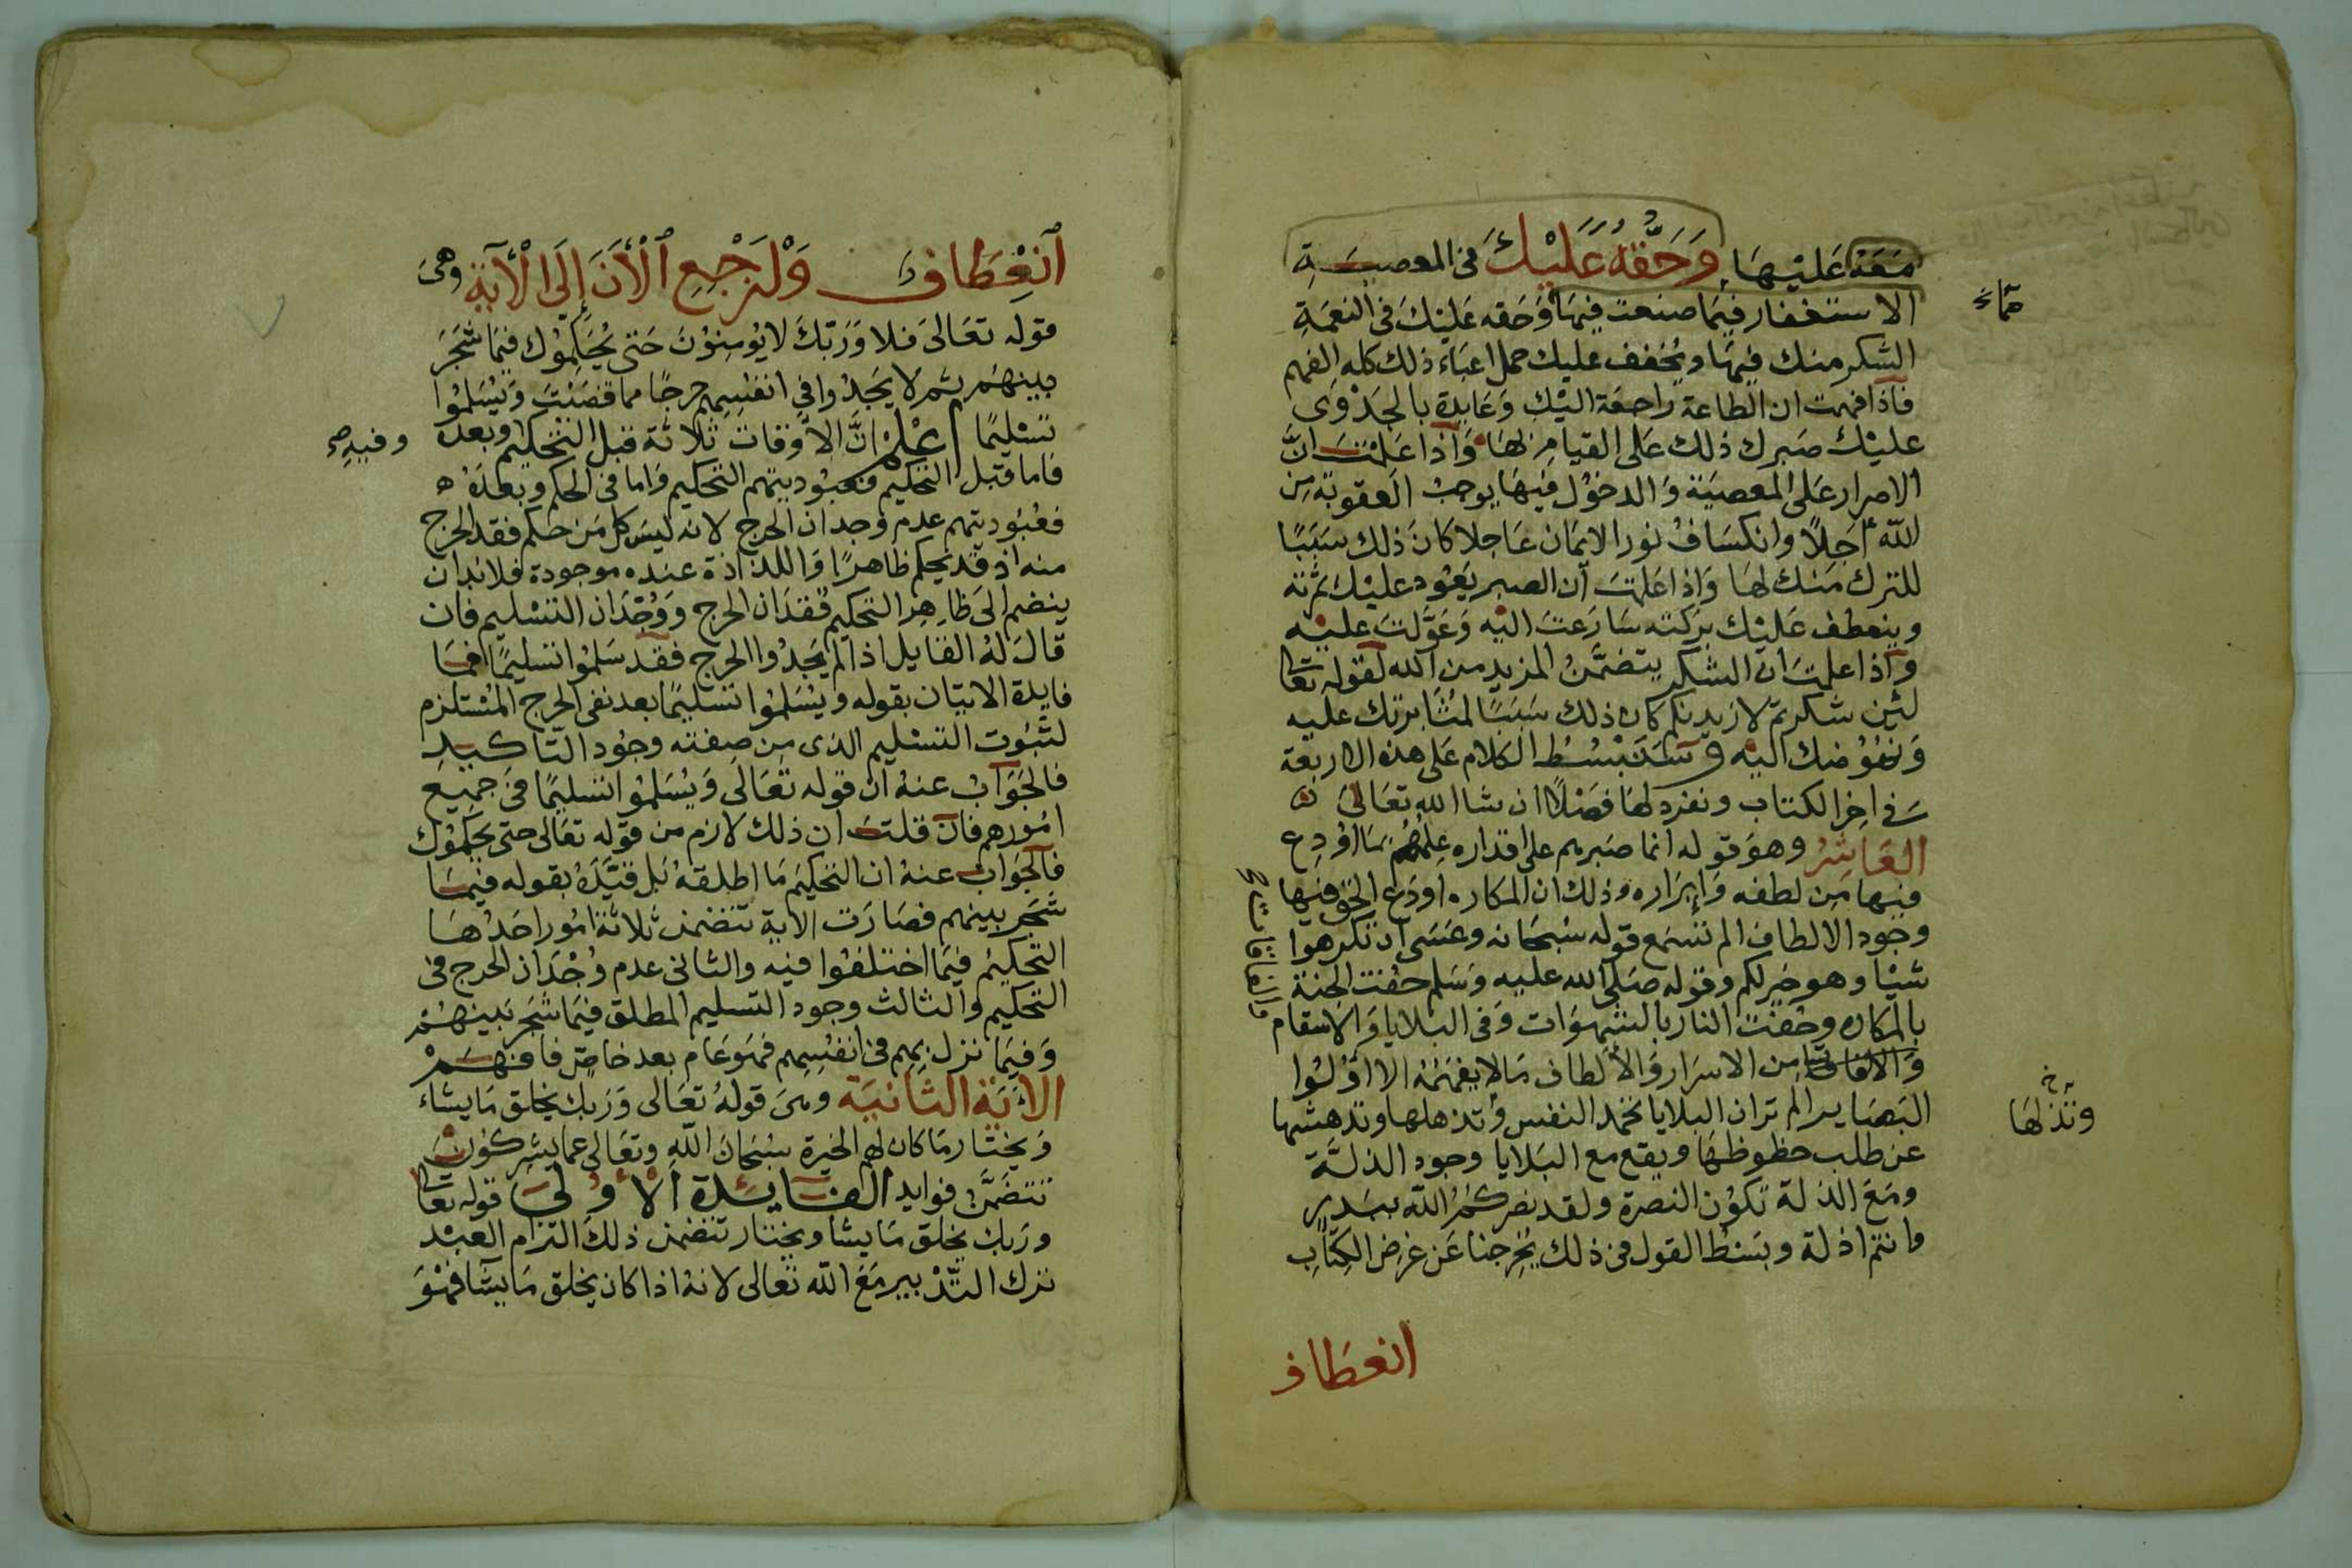 مَعَهُ عَلَيْهَا وَحَقُّهُ عَلَيْكَ فى المعصية
الاستغفار فيما صنعت فيها وَحقه عَليْكَ فى النعمَةِ
الشكر منك فيها ويُخفف عليك حمل اعباء ذلك كله الفهم
فاذا فهمت ان الطاعة راجعَة اليْك وَعَايدة بالجدْوى
عليْك صبرك ذلك عَلى القيام بها وَاذا عَلمْتَ انَّ
الاصرار عَلى المعصيَة وَالدخوْل فيهَا يوجبْ العقوبة مِن
الله أجلاً وانكسَافْ نور الايمَان عَاجلا كانَ ذلك سَبَبًا
للترك منْك لهَا وَاذا عَلمتَ أن الصبر يَعُود عليْك ثمرته
وينعطف عَليْك بَركته سَارَعتَ اليْه وَعَوَّلتَ عليْه
وَاذا علمتَ ان الشكر يتضمَّنُ المزيد من الله لقوله تعَا
لئِن شكرتمْ لازيدنكم كان ذلك سَبَبًا لمثَابرتك عليه
وَنهُوُضك اليْه وسَنَبْسُط الكلام عَلى هذه الاربعة
فى اخِر الكتاب ونفرد لهَا فَصْلاً ان شا الله تعَالى
العَاشِرُ وهوَ قوله انما صَبرهم على اقداره عِلمُهُم بمَا اوْدع
فيها مِن لطفه وَابرَاره وذلك ان المكاره اودَع الحق فيها
وجود الالطاف الم تسمع قوله سُبحَانه وعَسَى ان تكرهوا
شيْا وهو خَير لكم وقوله صَلى الله عليه وَسَلم حفت الجنة
بالمكاره وحفت النار بالشهوَات وَفى البلايا وَالاسقام
وَالافاقات من الاسرَار وَالألطاف مَالا يفهَمُهُ الا اوْلُوا
البَصَاير الم تر ان البلايا تخمد النفس وَتذهلها وتدهشها
عن طلب حظوظهَا ويقع مع البَلايا وجود الذلَّة
ومَعَ الذلة تكوُن النصرة ولقد نصركمُ الله ببَدر
وانتم اذلة وبَسْط القول فى ذلك يُخِرجنا عَن غرض الكِتابِ
وتذلهَا خ
انعطاف
اَنْعِطَاف وَلْنَرْجِعِ اْلأَنَ إِلَى اْلأَيَةِ وَهىَ
قوله تعَالىَ فلا وَرَبّكَ لا يوُمِنوُنَ حَتى يُحَكِّموُك فيمَا شَجَرَ
بينهَم ثم لا يَجدُوا فى انفسِهِم حرجًا مما قضَيْتَ وَيُسَلمُوا
تسْليمًا اعْلمْ انَّ الاوقات ثلاثة قبل التحكيم وبعده وفيهِ صح
فاما قبل التحكيم فعبُوديتهم التحكيم وَاما فى الحكم وبعدَهُ
فعُبُوديتهم عدم وجدان الحرج لانه ليسَ كل مَن حكم فقد الحرج
منه اذ قد يحكم ظاهرًا وَاللذاذة عنده موجودة فلابد ان
ينضم الىَ ظاهِرِ التحكيم فُقدَان الحرج وَوُجْدَان التسْليم فان
قالَ لهُ القايل اذا لم يجدُوا الحرج فقد سَلمُوا تسليمًا فمَا
فايدة الاتيان بقوله ويُسَلمُوا تسْليمًا بعد نفى الحرج المُسْتلزم
لثبُوت التسْليم الذى من صفته وجُود التاكيد
فالجَوَابُ عنهُ ان قوله تعَالى وَيُسَلمُوا تسليمًا فى جميع
امُورهم فان قلتَ ان ذلك لازم من قوله تعَالى حتى يحَكمُوْك
فالجَوَاب عنهُ ان التحكيم مَا اطلقهُ بَل قيَّدَهُ بقوله فيمَا
شَجَر بينهم فصَارَت الاية تتضمن ثلاثة امُور احَدُهَا
التحكِيمُ فيمَا اختلفُوا فيه والثانى عدم وُجْدَان الحرج فى
التحكيم والثالث وجود التسليم المطلق فيمَا شَجَر بَينهمْ
وَفيمَا نزل بهم فى انفسِهِم فهوَ عَام بعد خاصّ فافهَمْ
الاَيَة الثانيَة وهىَ قولهُ تعَالى وَرَبك يخلق مَا يشاء
وَيختار مَا كان لهم الخيَرة سُبحَانَ اللهِ وتعَالى عما يشركوُنَ
تتضَمَّن فوايد الفَايدة الأوُلىَ قوله تعَا
وَربك يخلق مَا يشا ويختار تتضمن ذلكَ التزام العبْد
ترك التدْبير مَعَ الله تعَالى لانهُ اذا كان يخلق مَا يشا فهُوَ